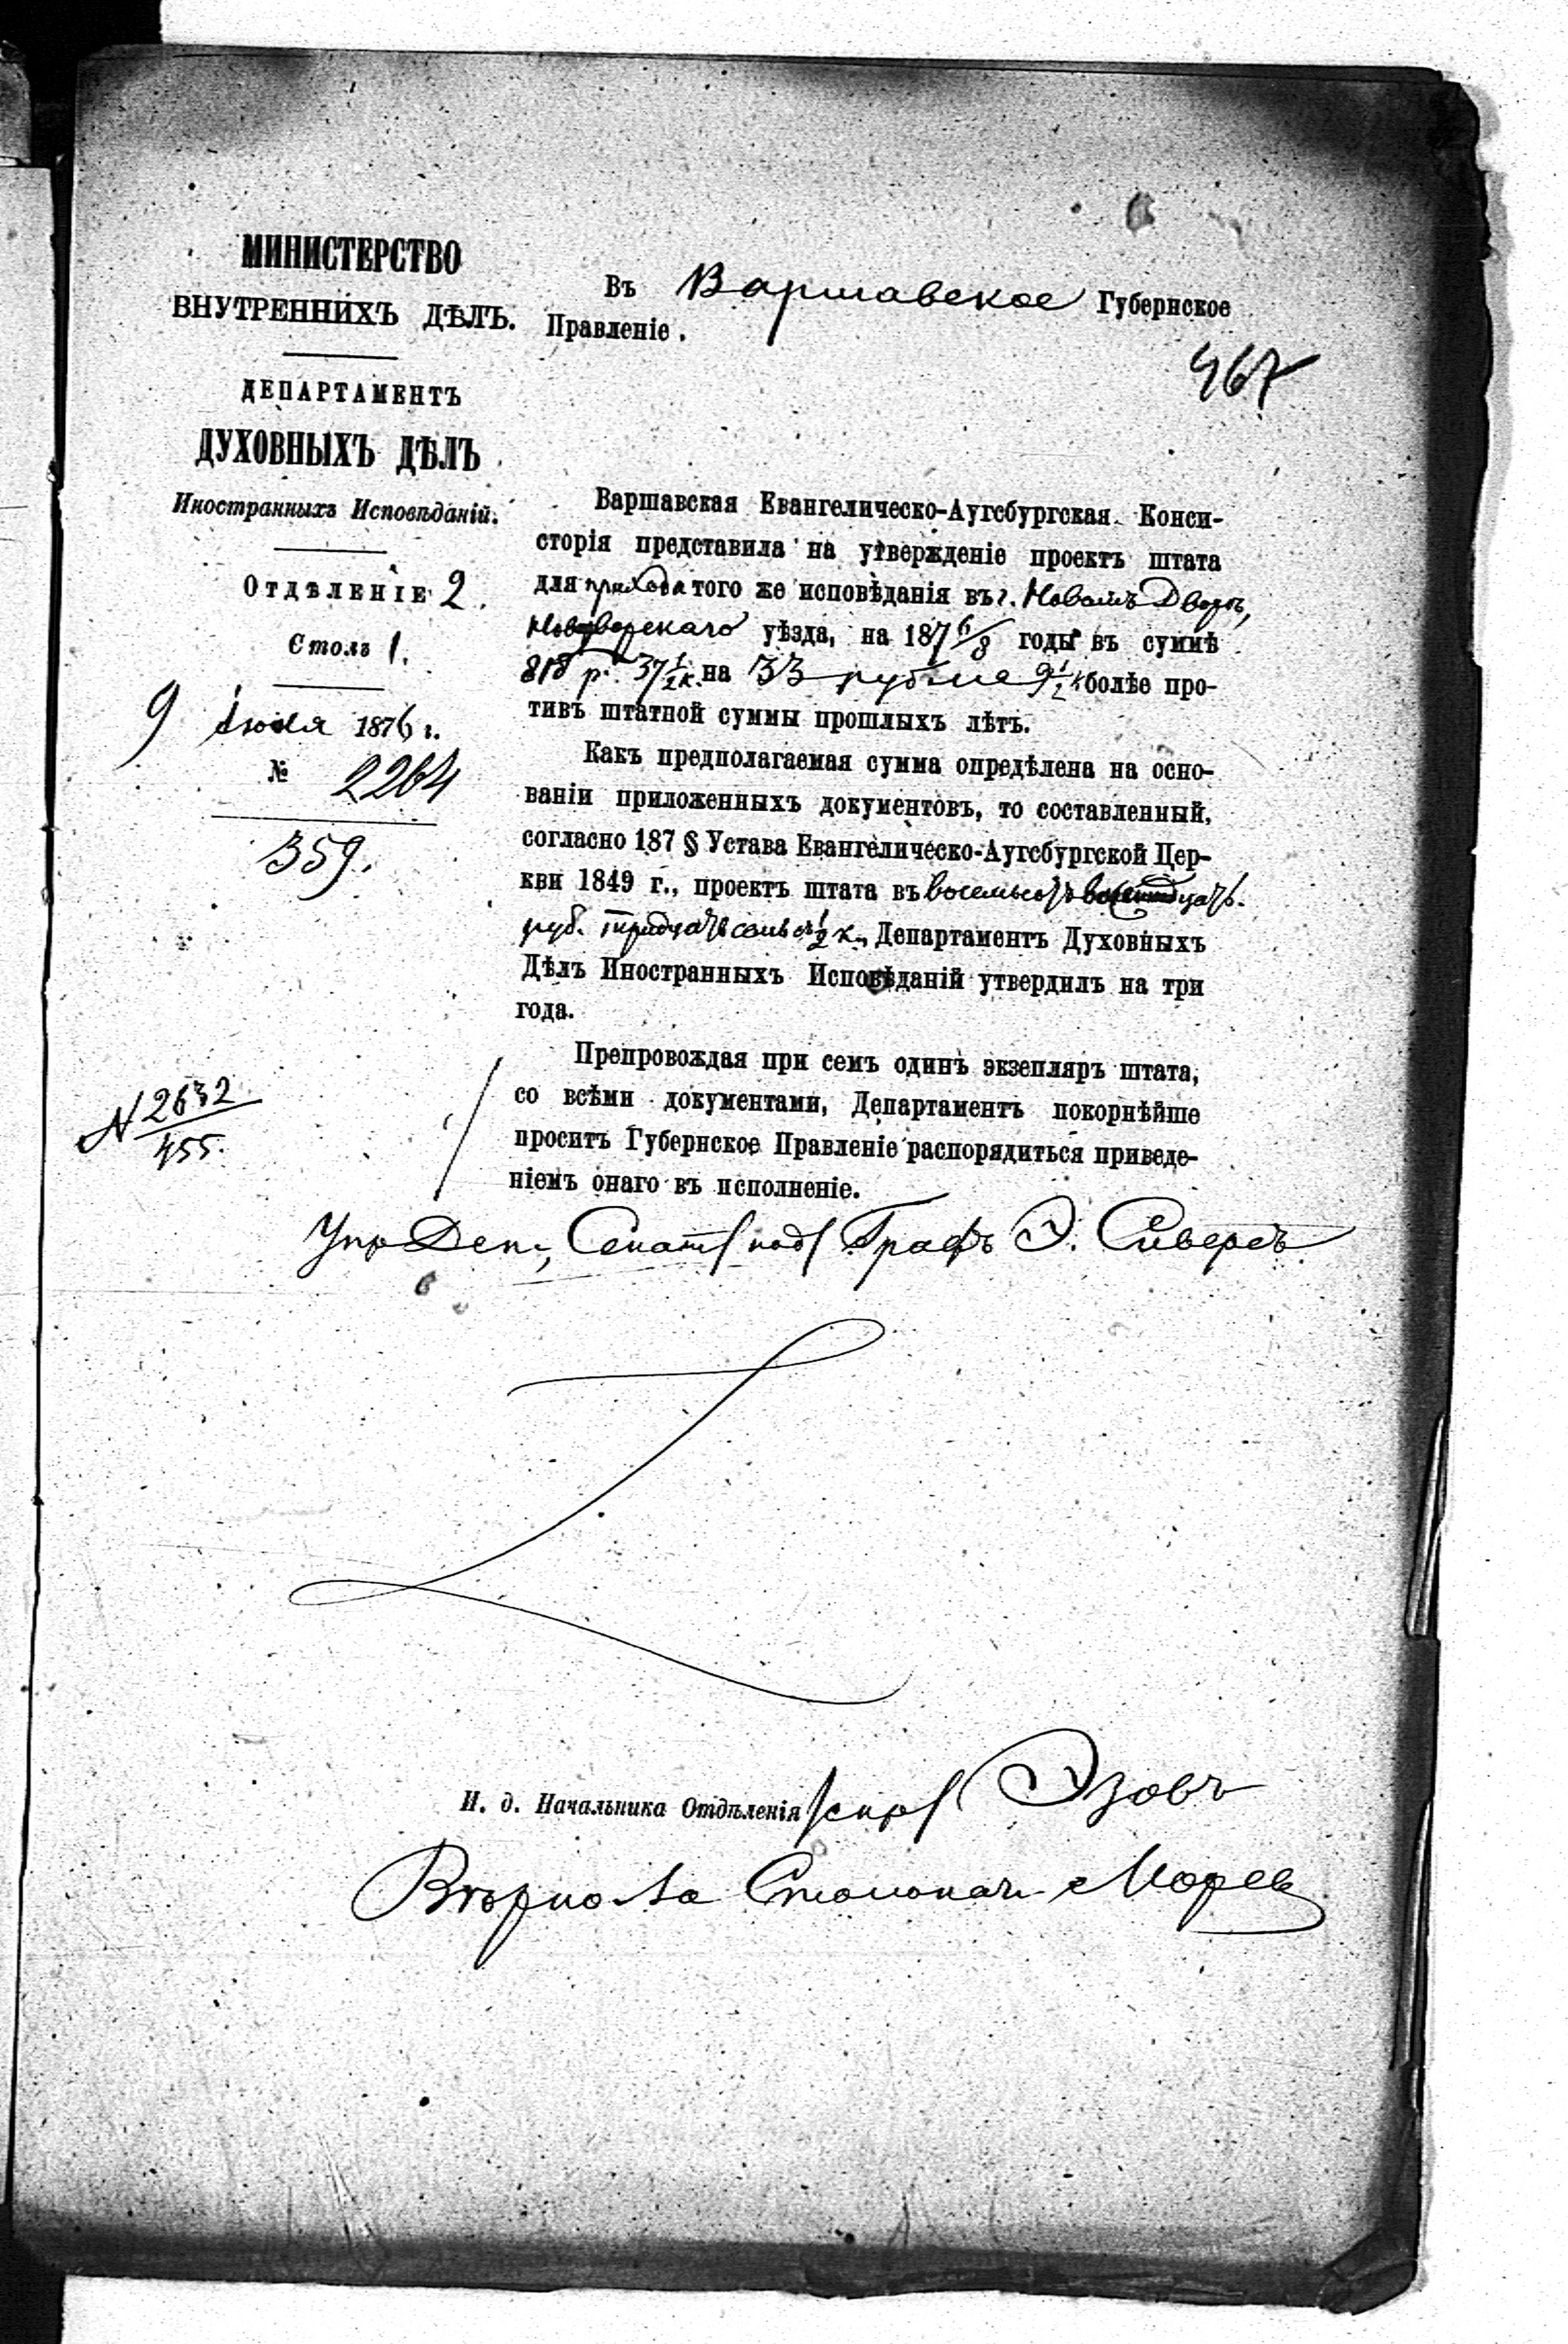 МИНИСТЕРСТВО
ВНУТРЕННИХЪ ДѢЛЪ.
ДЕПАРТАМЕНТЪ
ДУХОВНЫХЪ ДѢЛЪ
Иностранныхъ Исповѣданій.
Отдѣленіе 2.
Столъ 1.
9 Іюля 1876 г.
№ 2264
359.
N 2632
455.
Въ Варшавское Губернское
Правленіе.
467
Варшавская Евангелическо-Аугсбургская Конси-
сторія представила на утвержденіе проектъ штата
для прихода того же исповѣданія въ г. Новомъ Дворѣ,
уѣзда, на 187 6/8 годы въ суммѣ
818 р. 37 1/2 к. на 33 рубля 9 1/2 к болѣе про-
тивъ штатной суммы прошлыхъ лѣтъ.
Какъ предполагаемая сумма опредѣлена на осно-
ваніи приложенныхъ документовъ, то составленный,
согласно 187 § Устава Евангелическо-Аугсбургской Цер-
кви 1849 г., проектъ штата въ восемьсотъ
руб. тридцать семь съ 1/2 к., Департаментъ Духовныхъ
Дѣлъ Иностранныхъ Исповѣданій утвердилъ на три
года.
Препровождая при семъ одинъ экзепляръ штата,
со всѣми документами, Департаментъ покорнѣйше
проситъ Губернское Правленіе распорядиться приведе-
ніемъ онаго въ исполненіе.
Упр Деп, Сенат /под/ Графъ Э. Сиверсъ
И. д. Начальника Отдѣленія /скр/ Эзовъ
Вѣрно За Столонач